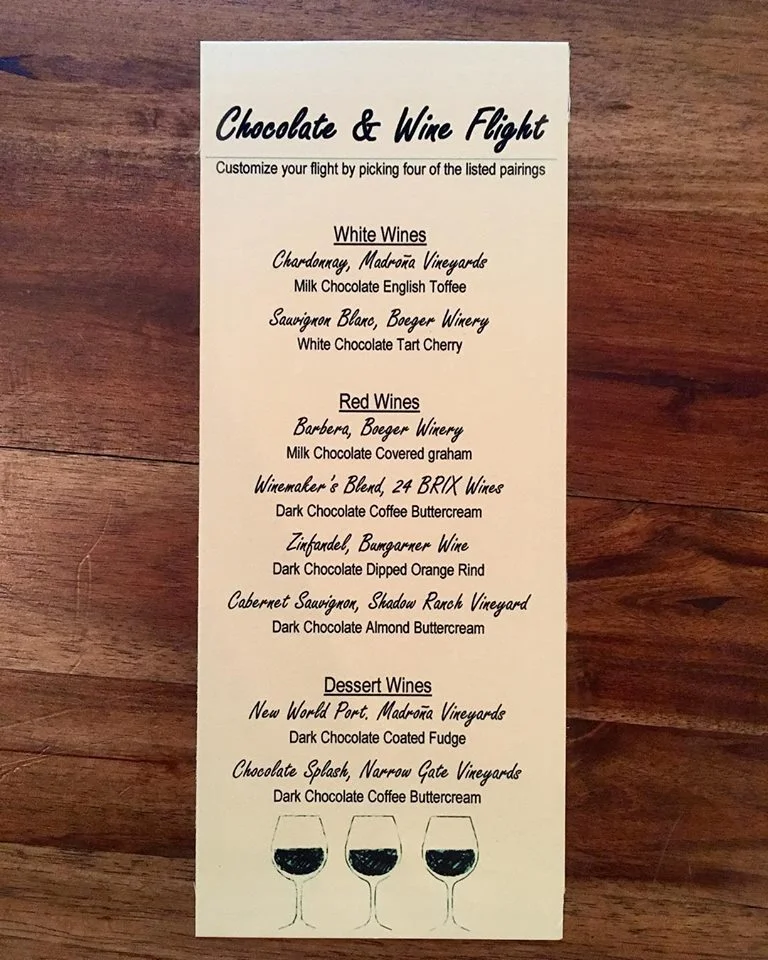 Chocolate & Wine Flight
Customize your flight by picking four of the listed pairings
White Wines
Chardonnay, Madroña Vineyards
Milk Chocolate English Toffee
Sauvignon Blanc, Boeger Winery
White Chocolate Tart Cherry
Red Wines
Barbera, Boeger Winery
Milk Chocolate Covered graham
Winemaker's Blend, 24 BRIX Wines
Dark Chocolate Coffee Buttercream
Zinfandel, Bumgarner Wine
Dark Chocolate Dipped Orange Rind
Cabernet Sauvignon, Shadow Ranch Vineyard
Dark Chocolate Almond Buttercream
Dessert Wines
New World Port. Madroña Vineyards
Dark Chocolate Coated Fudge
Chocolate Splash, Narrow Gate Vineyards
Dark Chocolate Coffee Buttercream